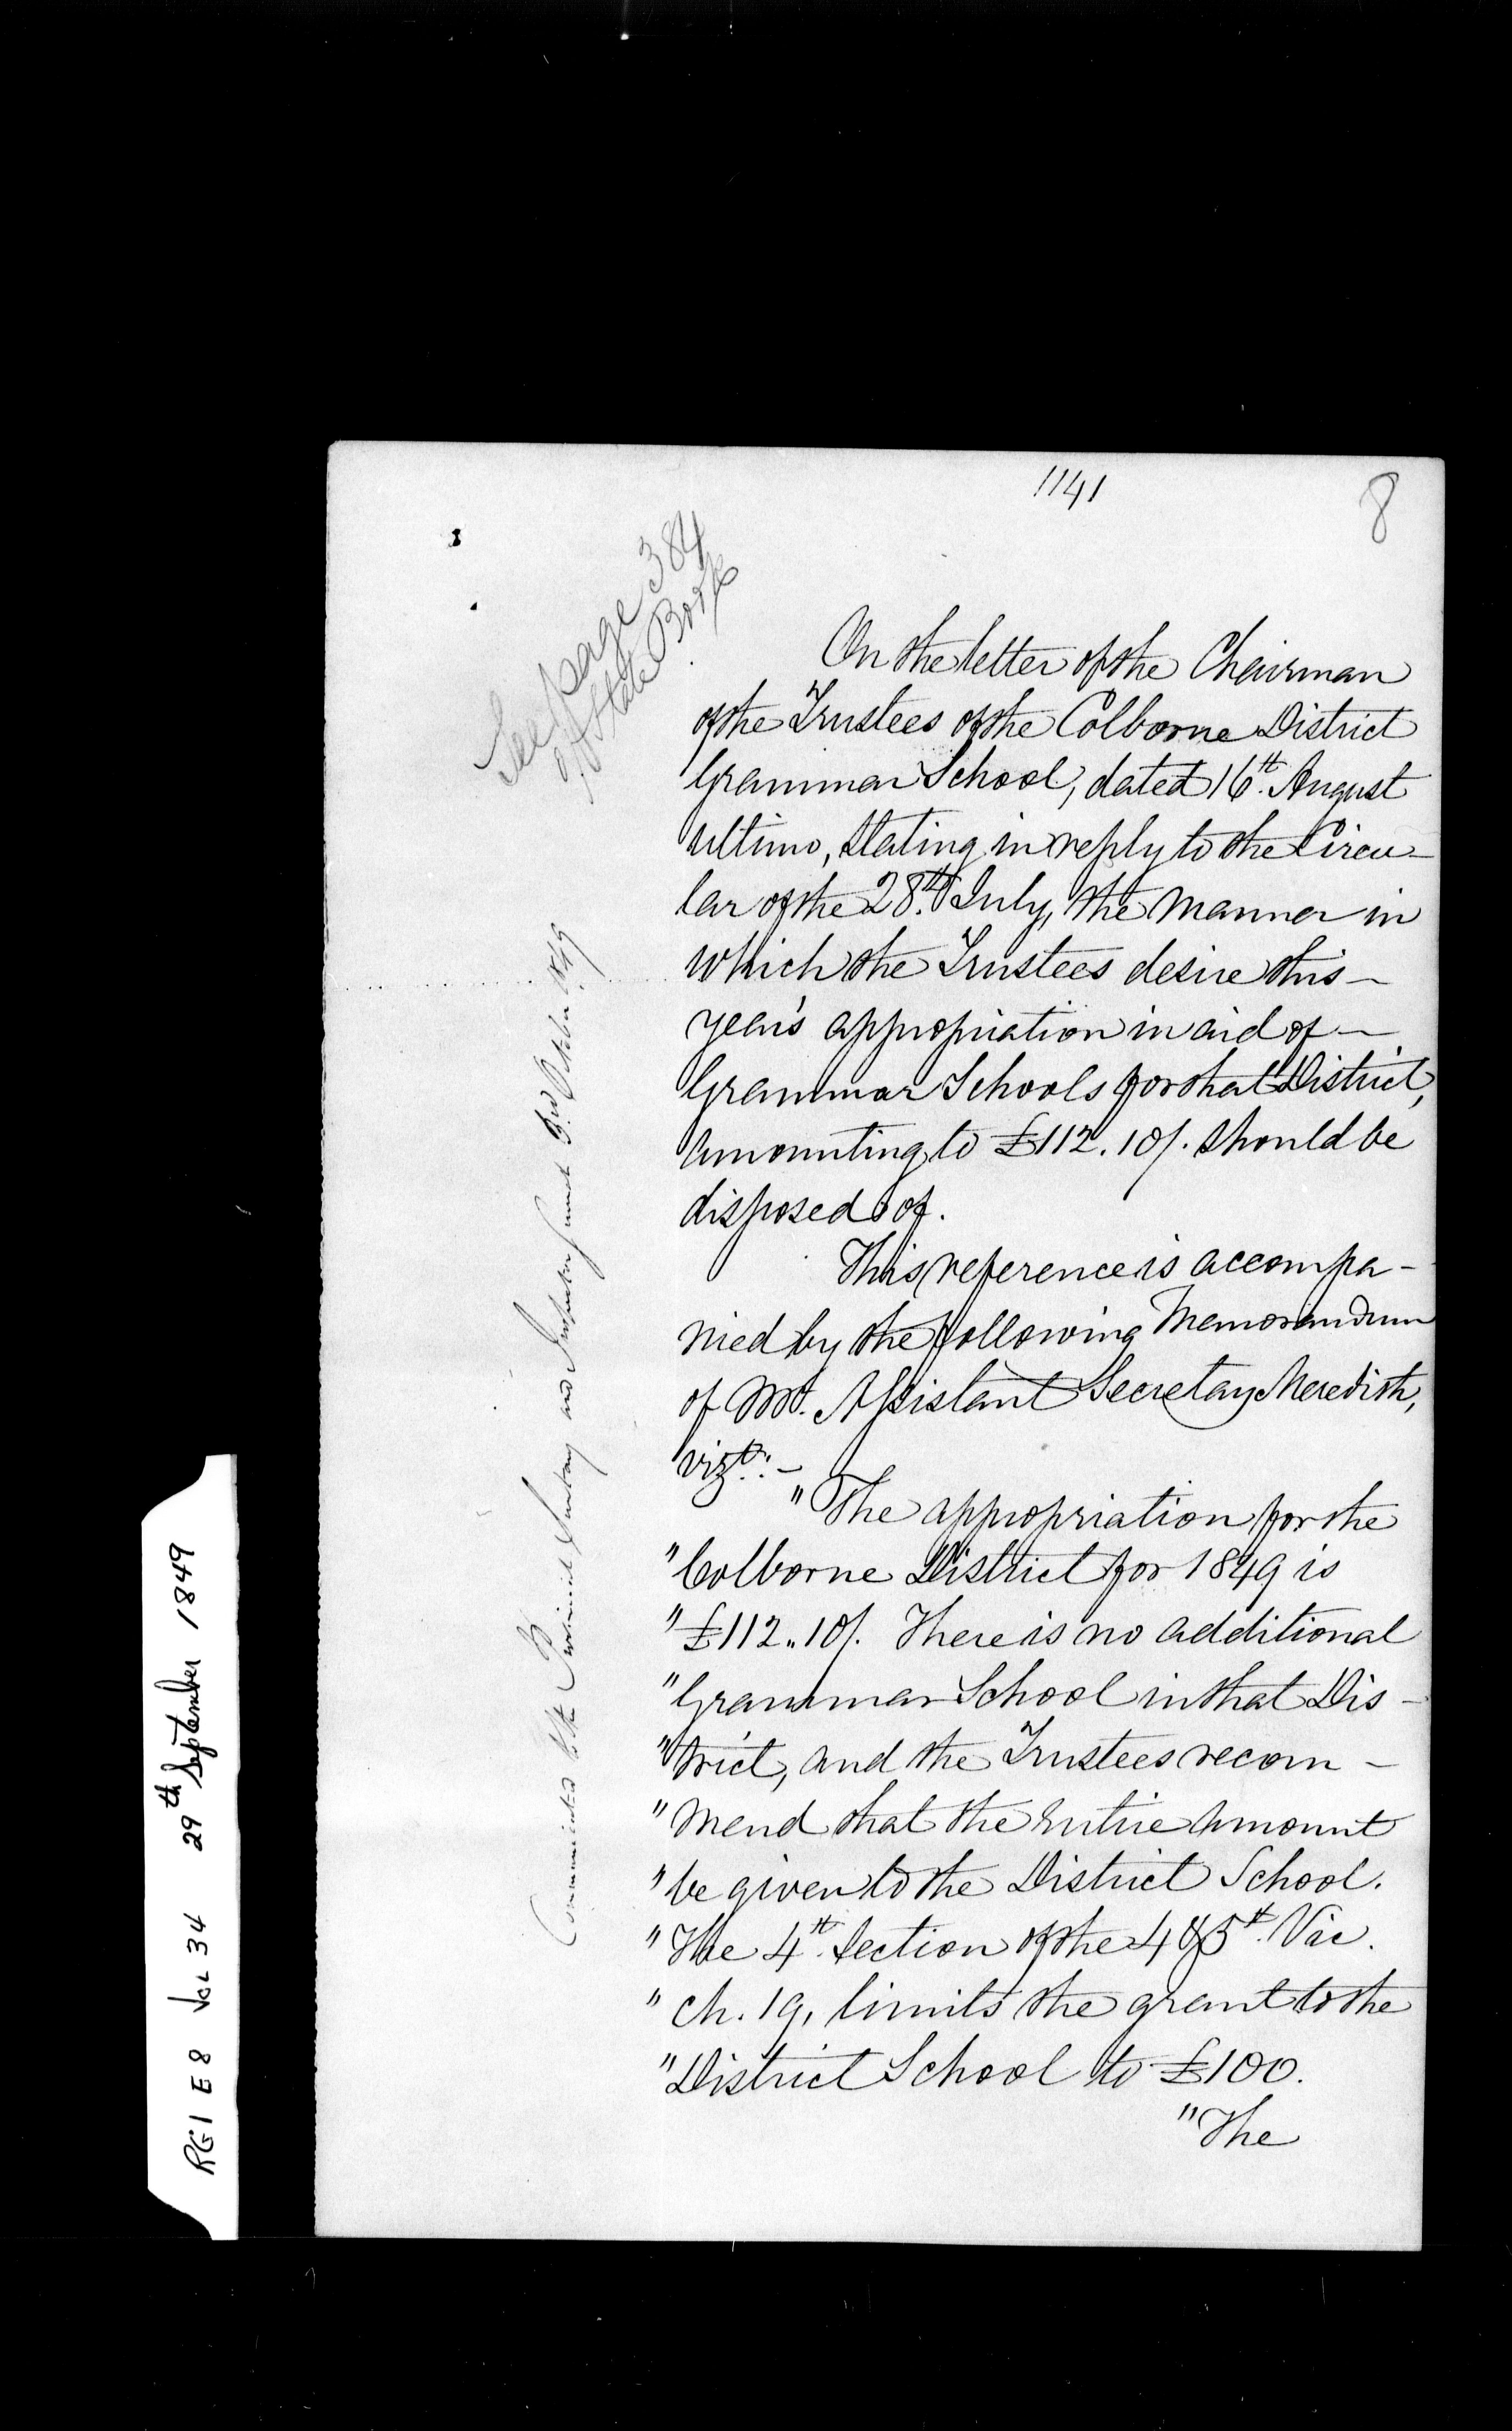 1141
8
See page 384
of State Book
On the letter of the Chairman
of the Trustees of the Colborne District
Grammar School, dated 16th. August
ultimo, stating in reply to the Circu-
lar of the 28th. July, the manner in
which the Trustees desire this—
year's appropriation in aid of—
Grammar Schools for that District,
amounting to £112.10/. should be
disposed of.
This reference is accompa-
nied by the following Memorandum
of Mr. Assistant Secretary Meredith,
vizt:-
"The appropriation for the
"Colborne District for 1849 is
"£112..10/. There is no additional
"Grammar School in that Dis-
"trict, and the Trustees recom-
"mend that the entire amount
"be given to the District School.
"The 4th. Section of the 4 & 5th. Vic.
"ch. 19, limits the grant to the
"District School to £100.
"The
Communicated to the Provincial Secretary and Inspector General 3rd October 1849
RG1 E8 Vol 34 29th September 1849